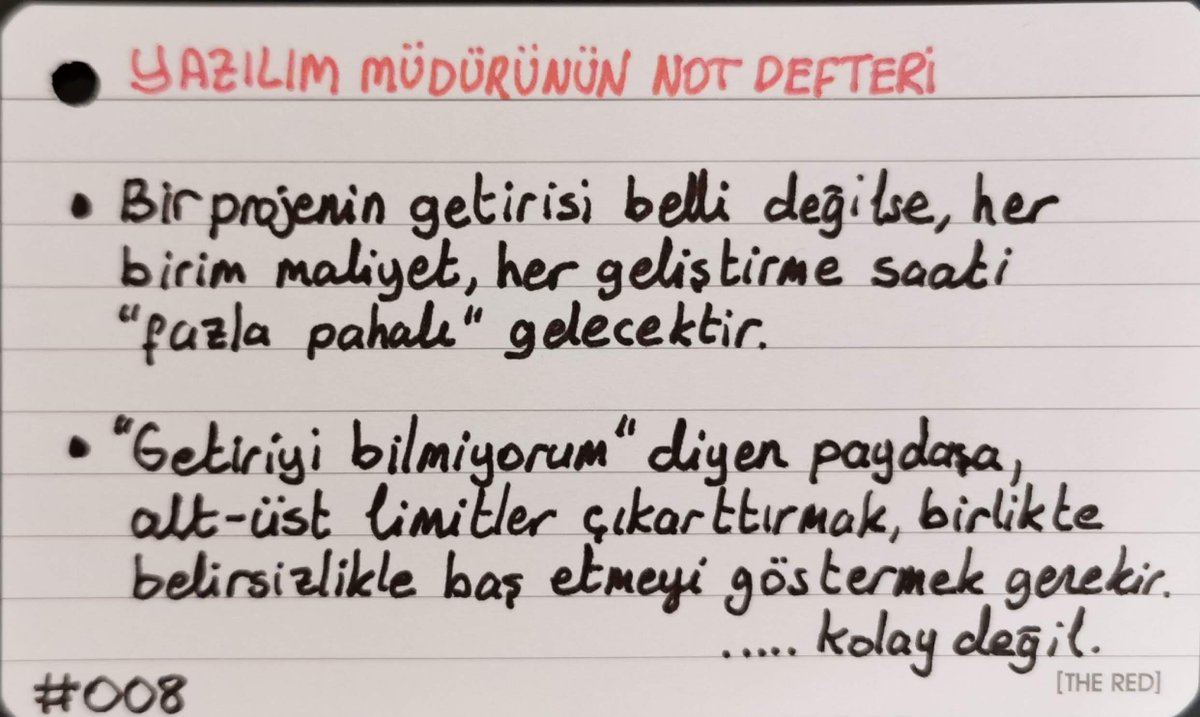 YAZILIM MÜDÜRÜNÜN NOT DEFTERİ
• Bir projenin getirisi belli değilse, her
birim maliyet, her geliştirme saati
“fazla pahalı“ gelecektir.
• “Getiriyi bilmiyorum“ diyen paydaşa,
alt-üst limitler çıkarttırmak, birlikte
belirsizlikle baş etmeyi göstermek gerekir.
..... kolay değil.
[THE RED]
#008